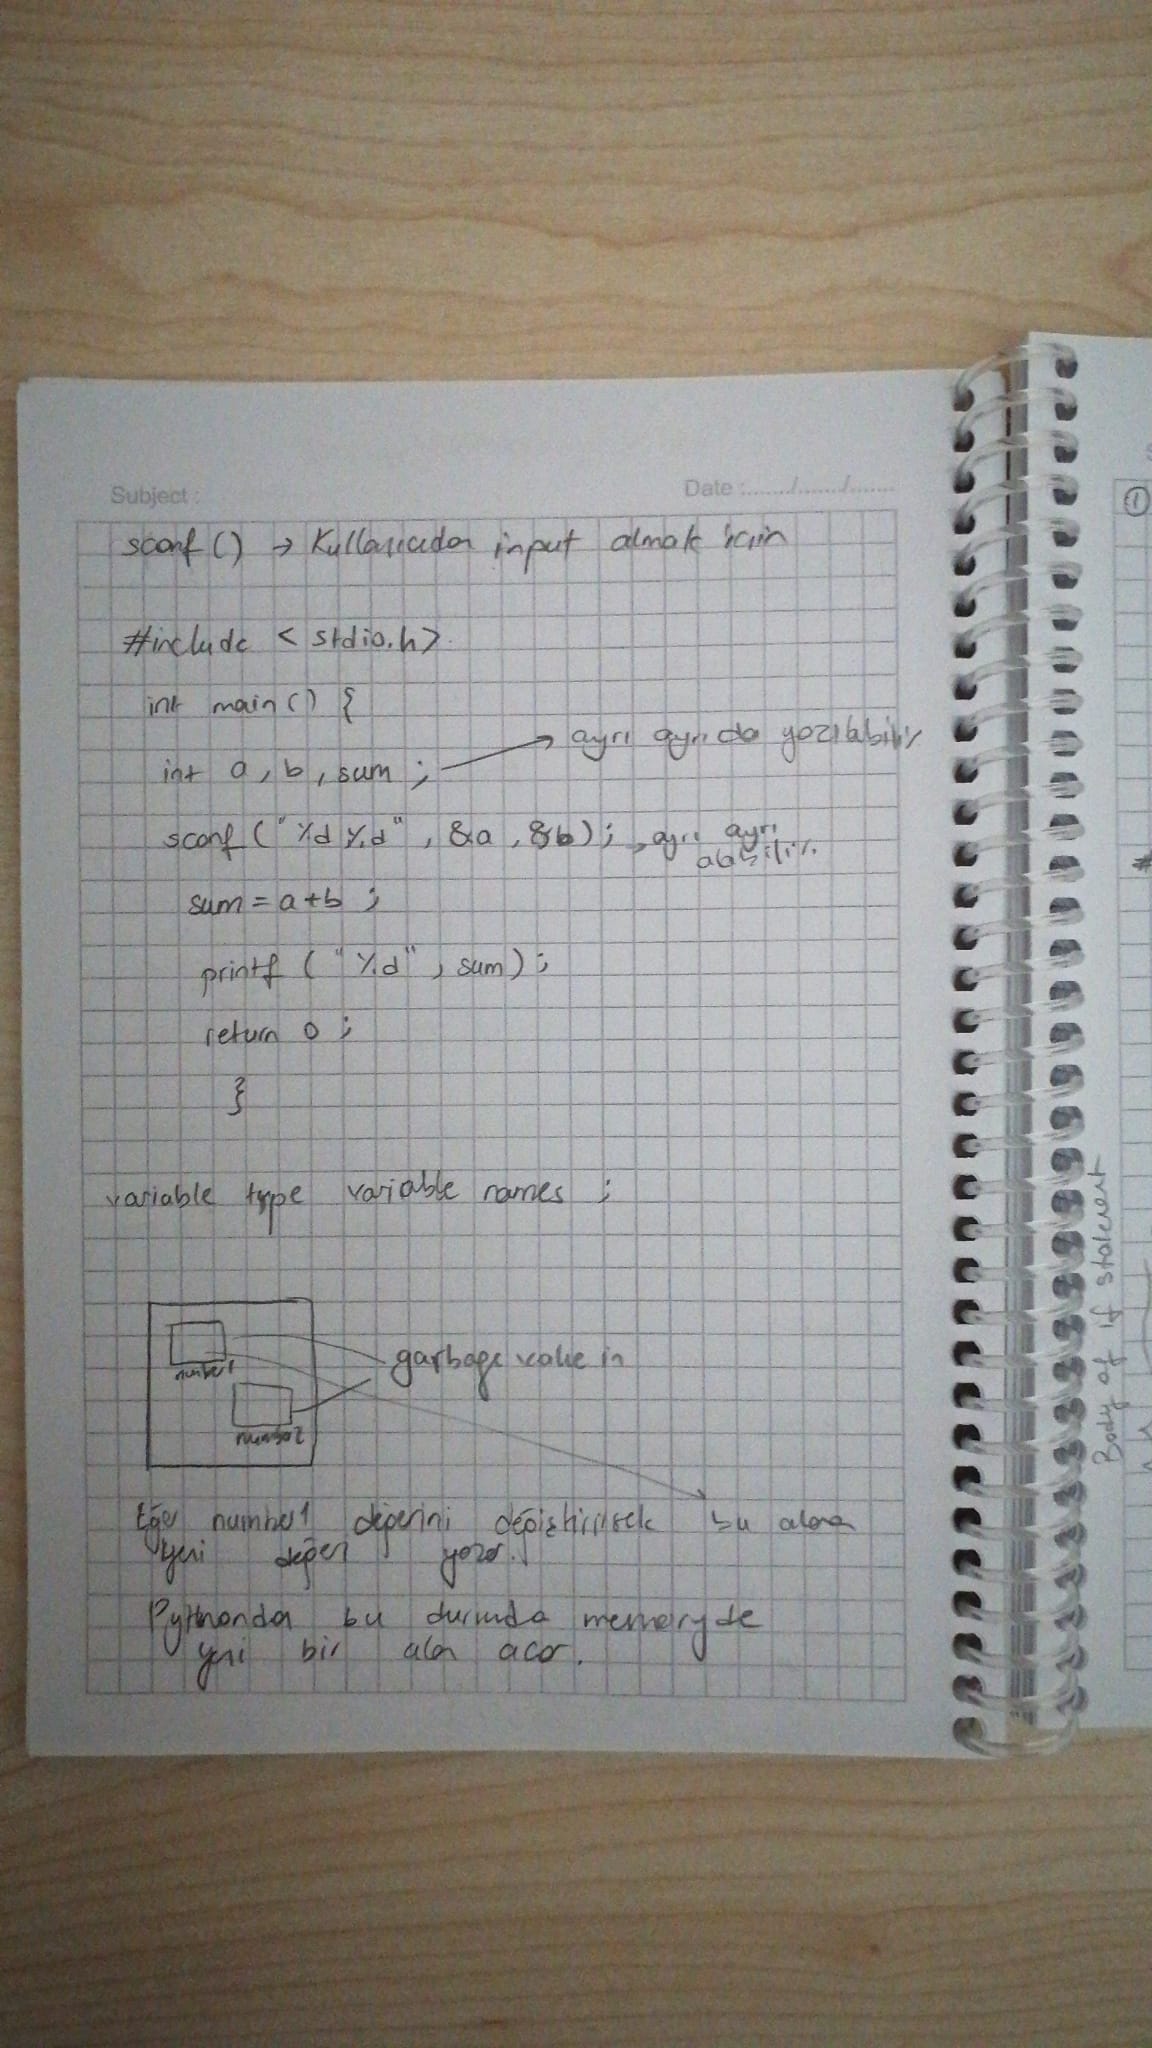 Subject :
Date :......./......./.......
scanf() → Kullanıcıdan input almak için
#include <stdio.h>
int main() {
int a, b, sum ; → ayrı ayrı da yazılabilir
scanf("%d %d", &a, &b); , ayrı ayrı
alabilir.
sum = a+b ;
printf ("%d", sum);
return 0 ;
}
variable type variable names ;
number1
garbage value in
number2
Eğer number1 değerini değiştirirsek bu alana
yeni değeri yazar.
Pythonda bu durumda memoryde
yeni bir alan açar.
①
Body of if statement